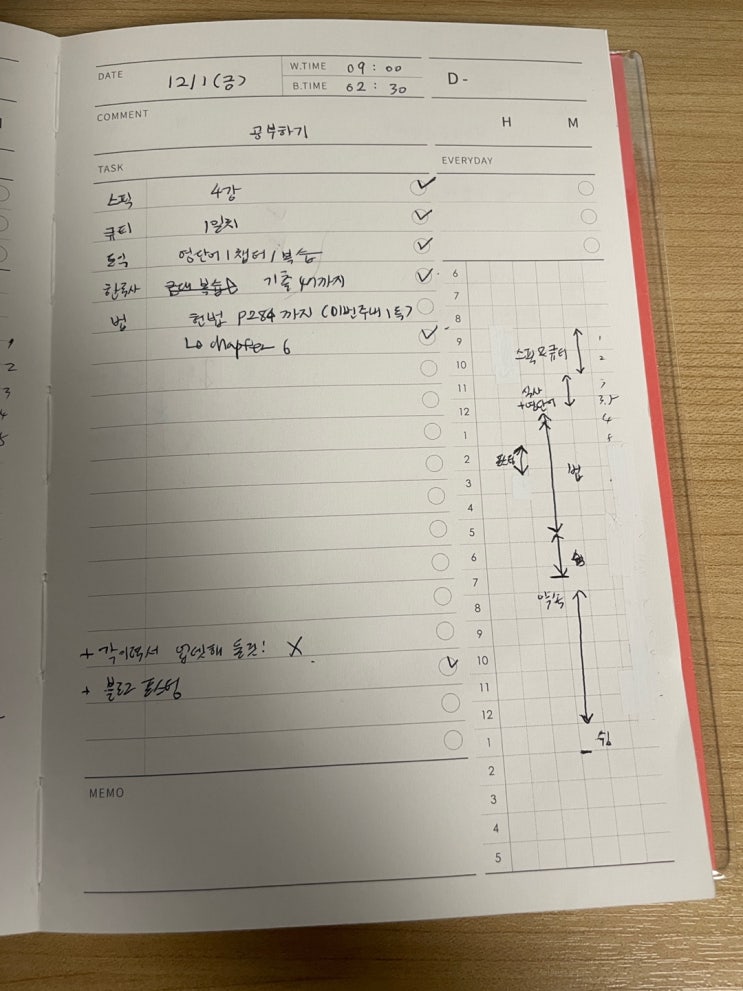 DATE 12/1(금) W.TIME 09:00 D-
B.TIME 02:30
COMMENT 공부하기 H M
TASK EVERYDAY
스픽 4강
큐티 1일치
토익 영단어 1챕터 / 복습
한국사 근대 복습 기출 4까지
법 헌법 P284까지 (이번주내 1독)
↳ chapter 6
+ 블로 포스팅
6
7
8
9 스픽 큐티 1
10 2
11 식사 3
12 +영단어 3.5
1 4
2 법
3
4
5
6 쉼
7
8 약속
9
10
11
12
1 쉼
2
3
4
5
MEMO